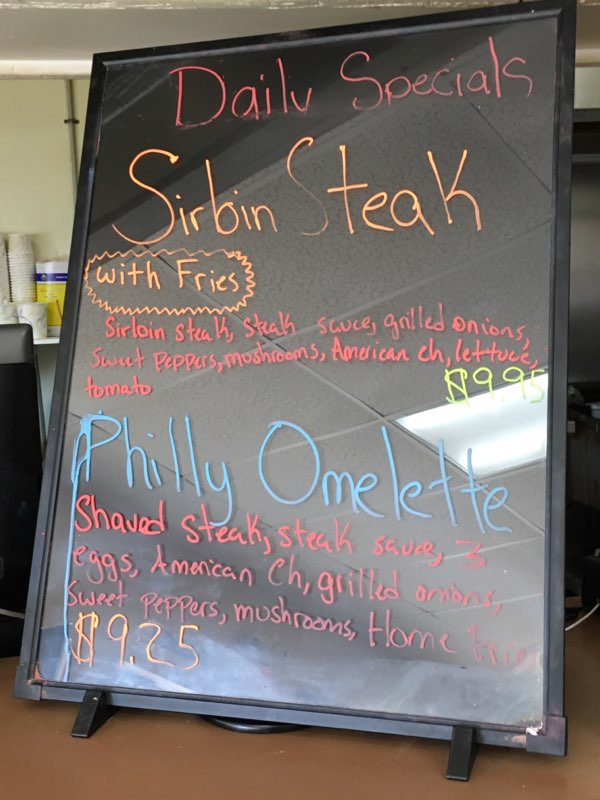 Daily Specials
Sirloin Steak
with Fries
Sirloin steak, steak sauce, grilled onions,
Sweet Peppers, mushrooms, American ch, lettuce,
tomato
$9.95
Philly Omelette
Shaved steak, steak sauce, 3
eggs, American Ch, grilled onions,
Sweet Peppers, mushrooms, Home fries
$9.25